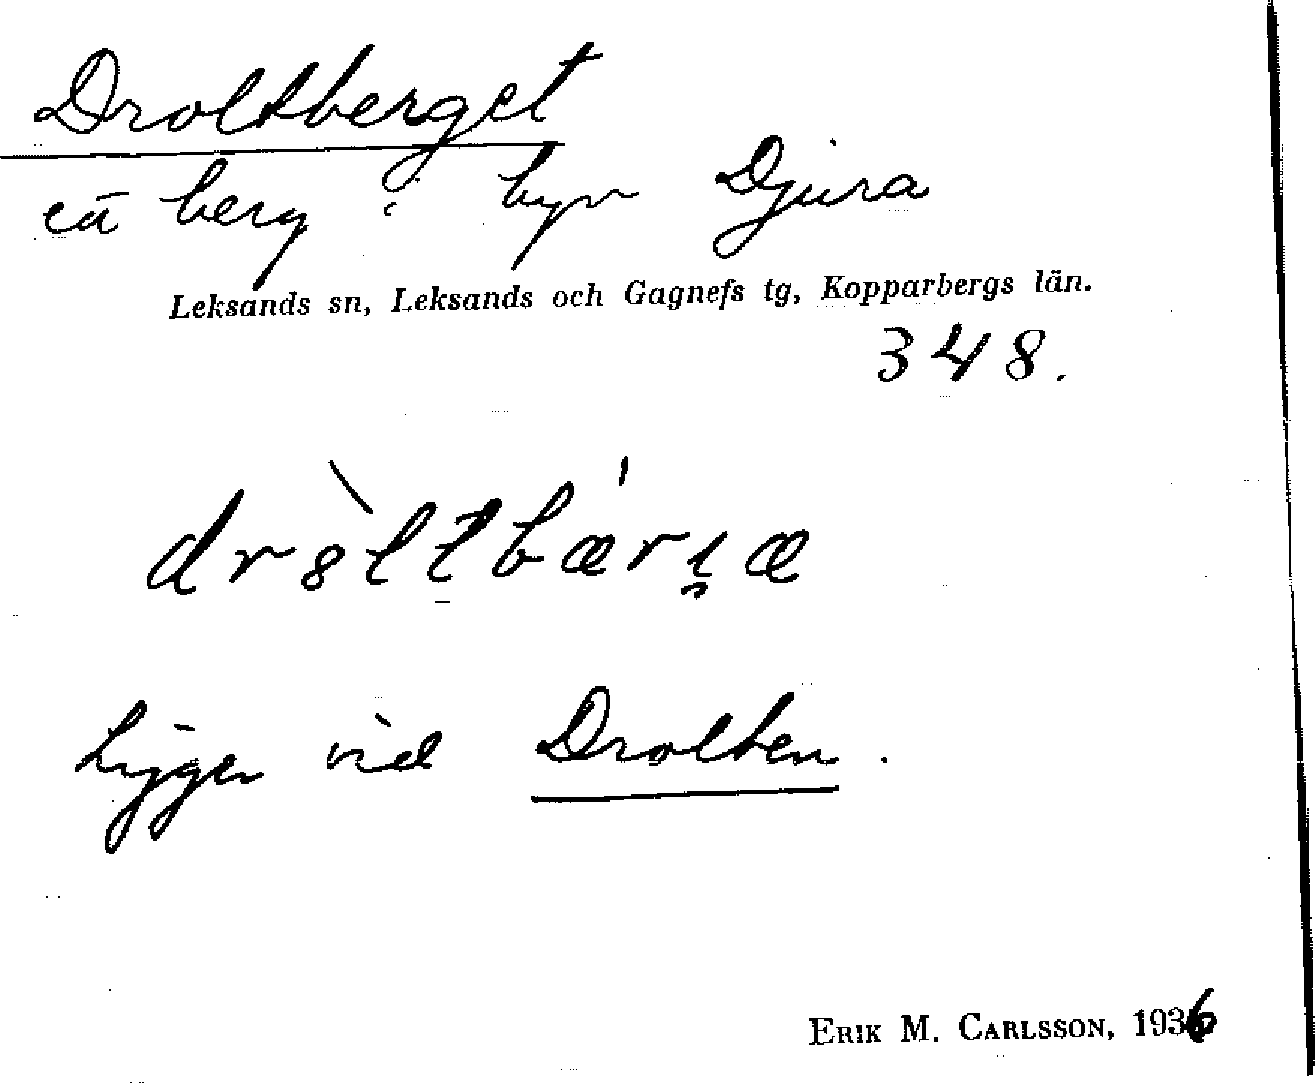 Droltberget
ett berg i byn Djura
Leksands sn, Leksands och Gagnefs tg, Kopparbergs län.
348.
dr8̀ltbǽrıæ
Ligger vid Drolten.
ERIK M. CARLSSON, 1936